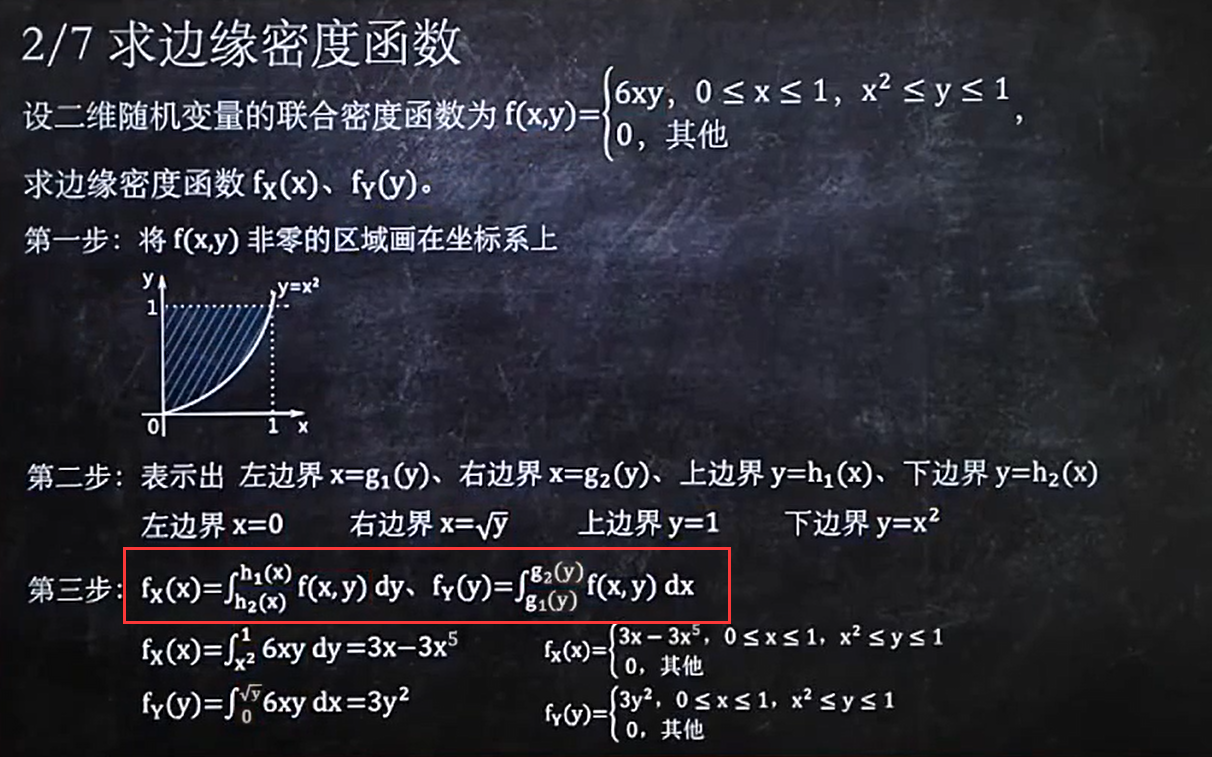 2/7 求边缘密度函数
设二维随机变量的联合密度函数为 f(x,y)={6xy，0 ≤ x ≤ 1，x² ≤ y ≤ 1
0，其他，
求边缘密度函数 fX(x)、fY(y)。
第一步：将 f(x,y) 非零的区域画在坐标系上
y
y=x²
1
0 1 x
第二步：表示出 左边界 x=g₁(y)、右边界 x=g₂(y)、上边界 y=h₁(x)、下边界 y=h₂(x)
左边界 x=0 右边界 x=√y 上边界 y=1 下边界 y=x²
第三步：fX(x)=∫h₂(x)h₁(x) f(x,y) dy、fY(y)=∫g₁(y)g₂(y) f(x,y) dx
fX(x)=∫x²1 6xy dy=3x−3x⁵ fX(x)={3x − 3x⁵，0 ≤ x ≤ 1，x² ≤ y ≤ 1
0，其他
fY(y)=∫0√y 6xy dx=3y² fY(y)={3y²，0 ≤ x ≤ 1，x² ≤ y ≤ 1
0，其他